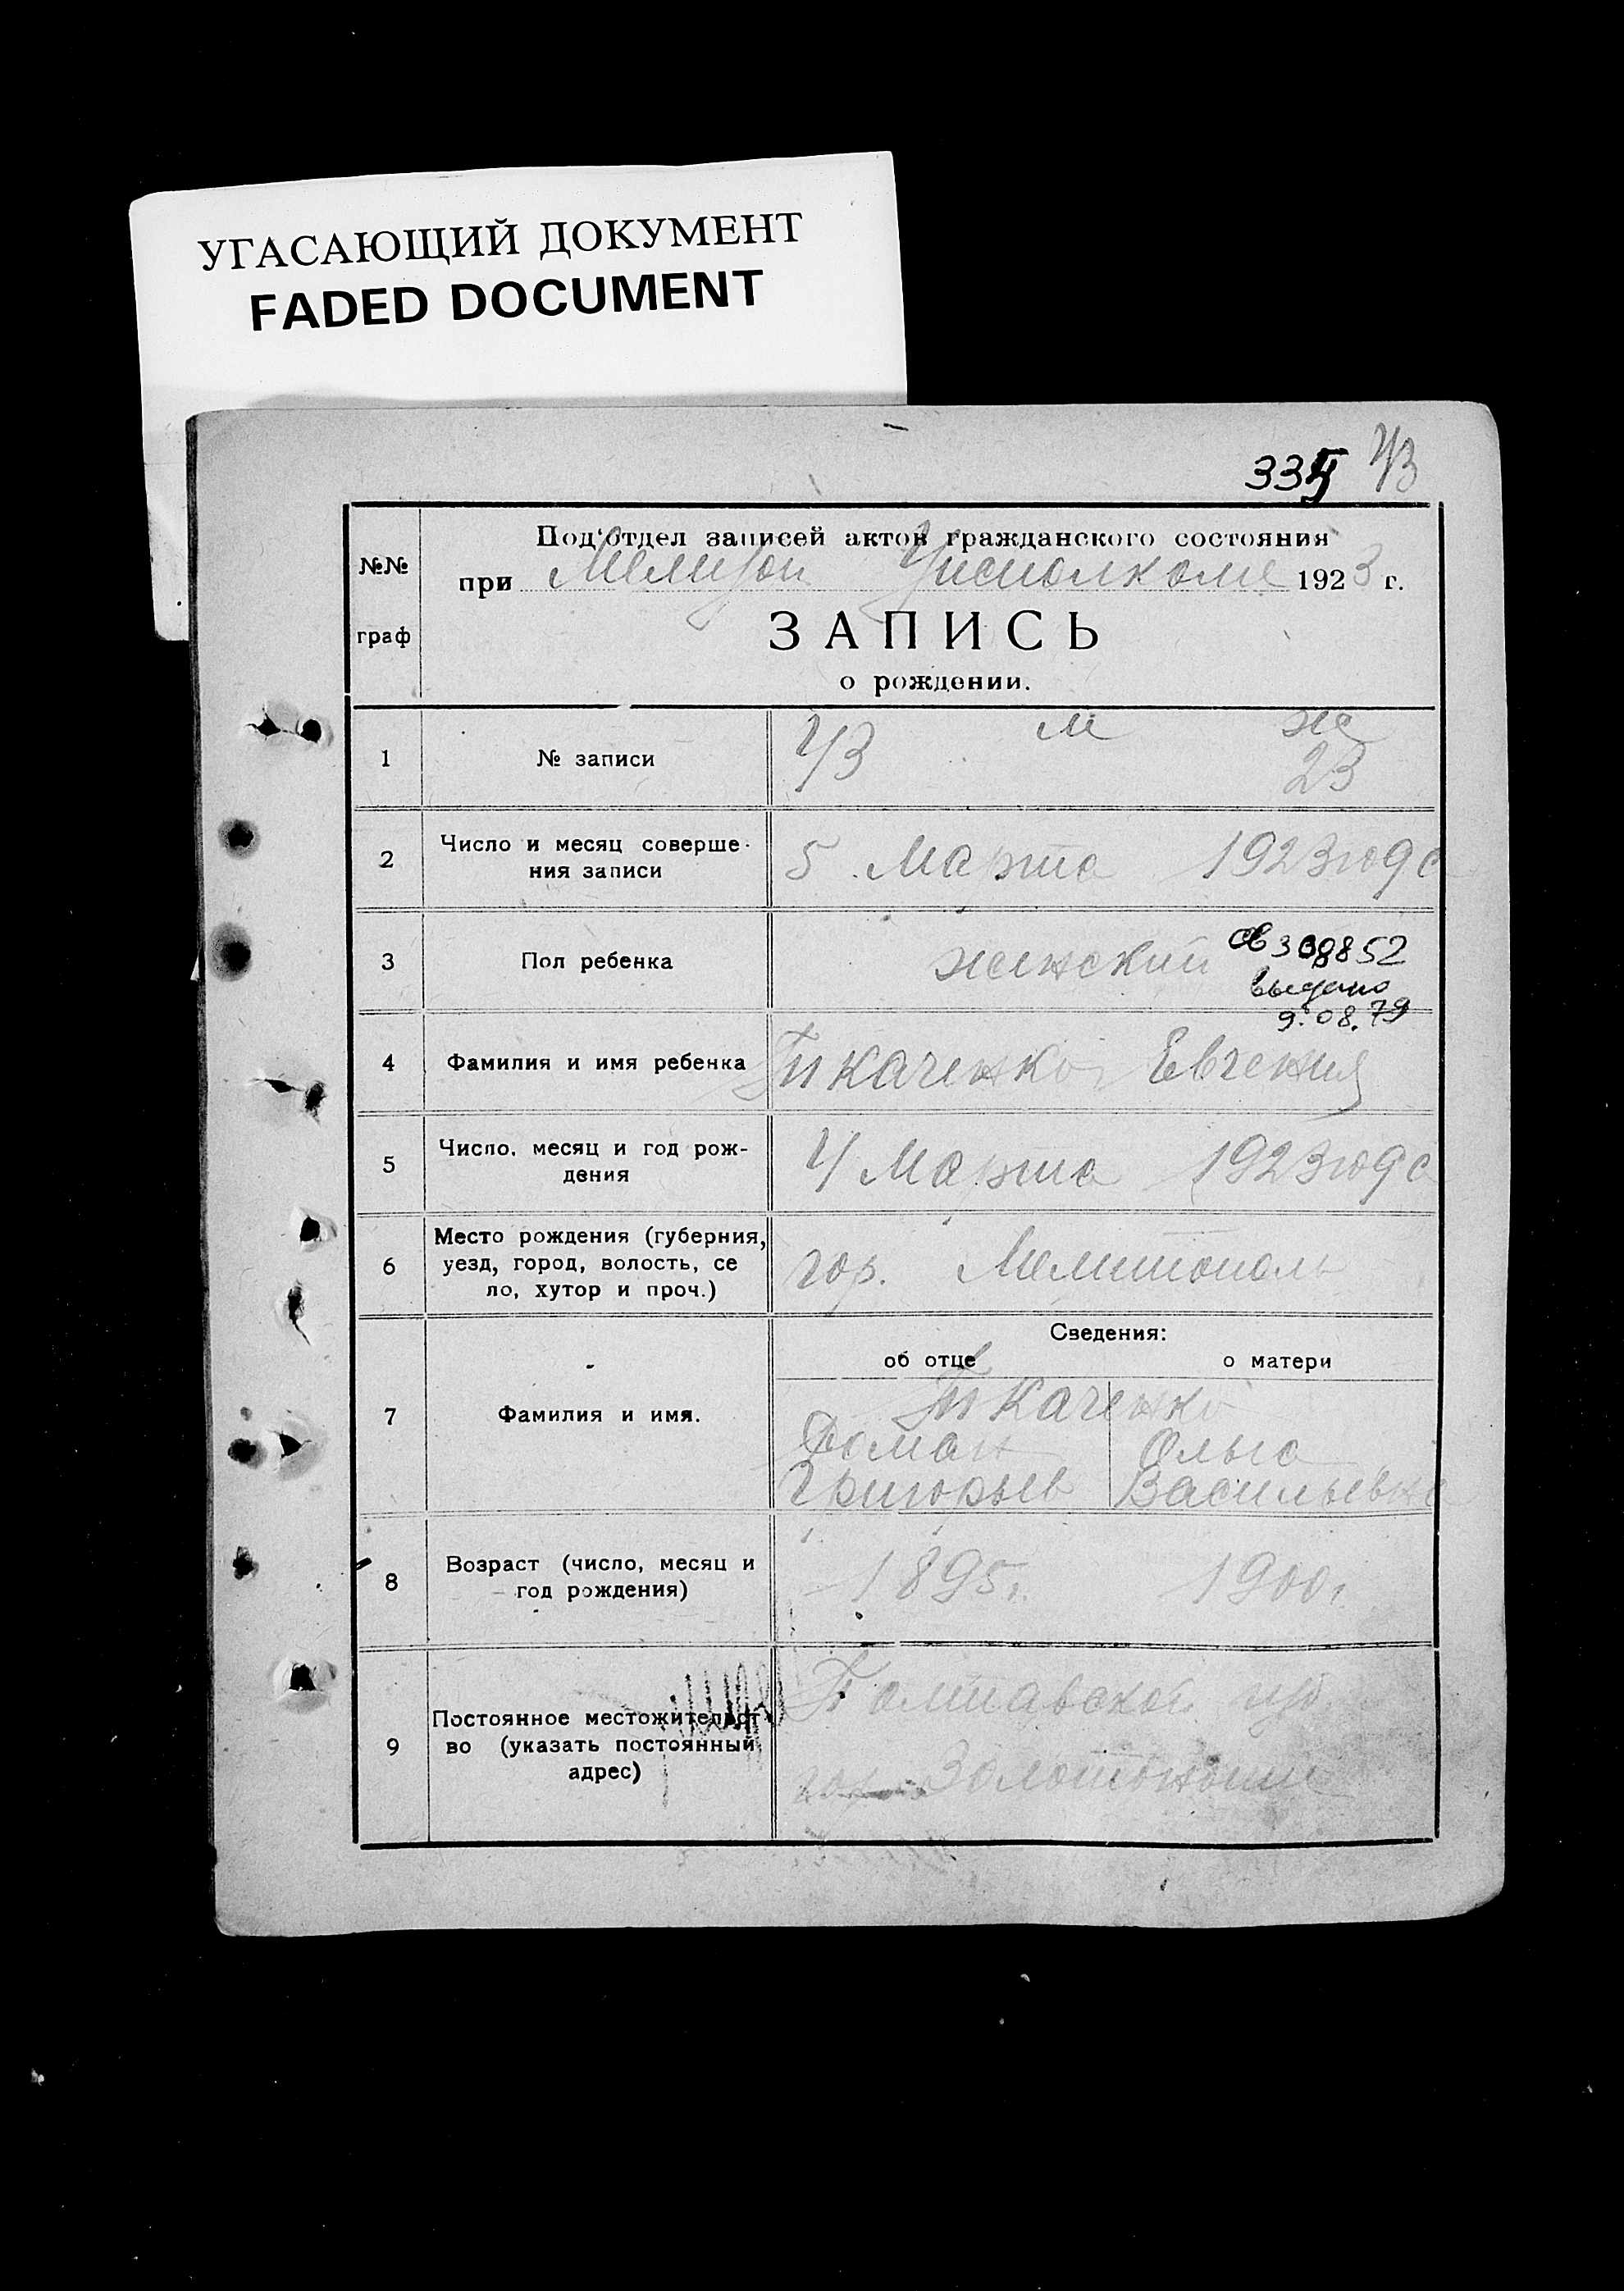 УГАСАЮЩИЙ ДОКУМЕНТ
FADED DOCUMENT
335 43
№№
граф
Под'отдел записей актов гражданского состояния
при Мелитоп Уисполкоме 1923 г.
ЗАПИСЬ
о рождении.
1 № записи 43 м ж
23
2 Число и месяц соверше-
ния записи
5 Марта 1923 года
3 Пол ребенка женский
выдано
9.08.79
4 Фамилия и имя ребенка Ткаченко Евгения
5 Число, месяц и год рож-
дения
4 Марта 1923 года
6 Место рождения (губерния,
уезд, город, волость, се
ло, хутор и проч.)
гор. Мелитополь
Сведения:
об отце о матери
7 Фамилия и имя.
Ткаченко
Роман Ольга
Григорьев Васильевна
8 Возраст (число, месяц и
год рождения)
1895г. 1900г.
9 Постоянное местожительст
во (указать постоянный
адрес)
Полтавской губ
гор. Золотоноши